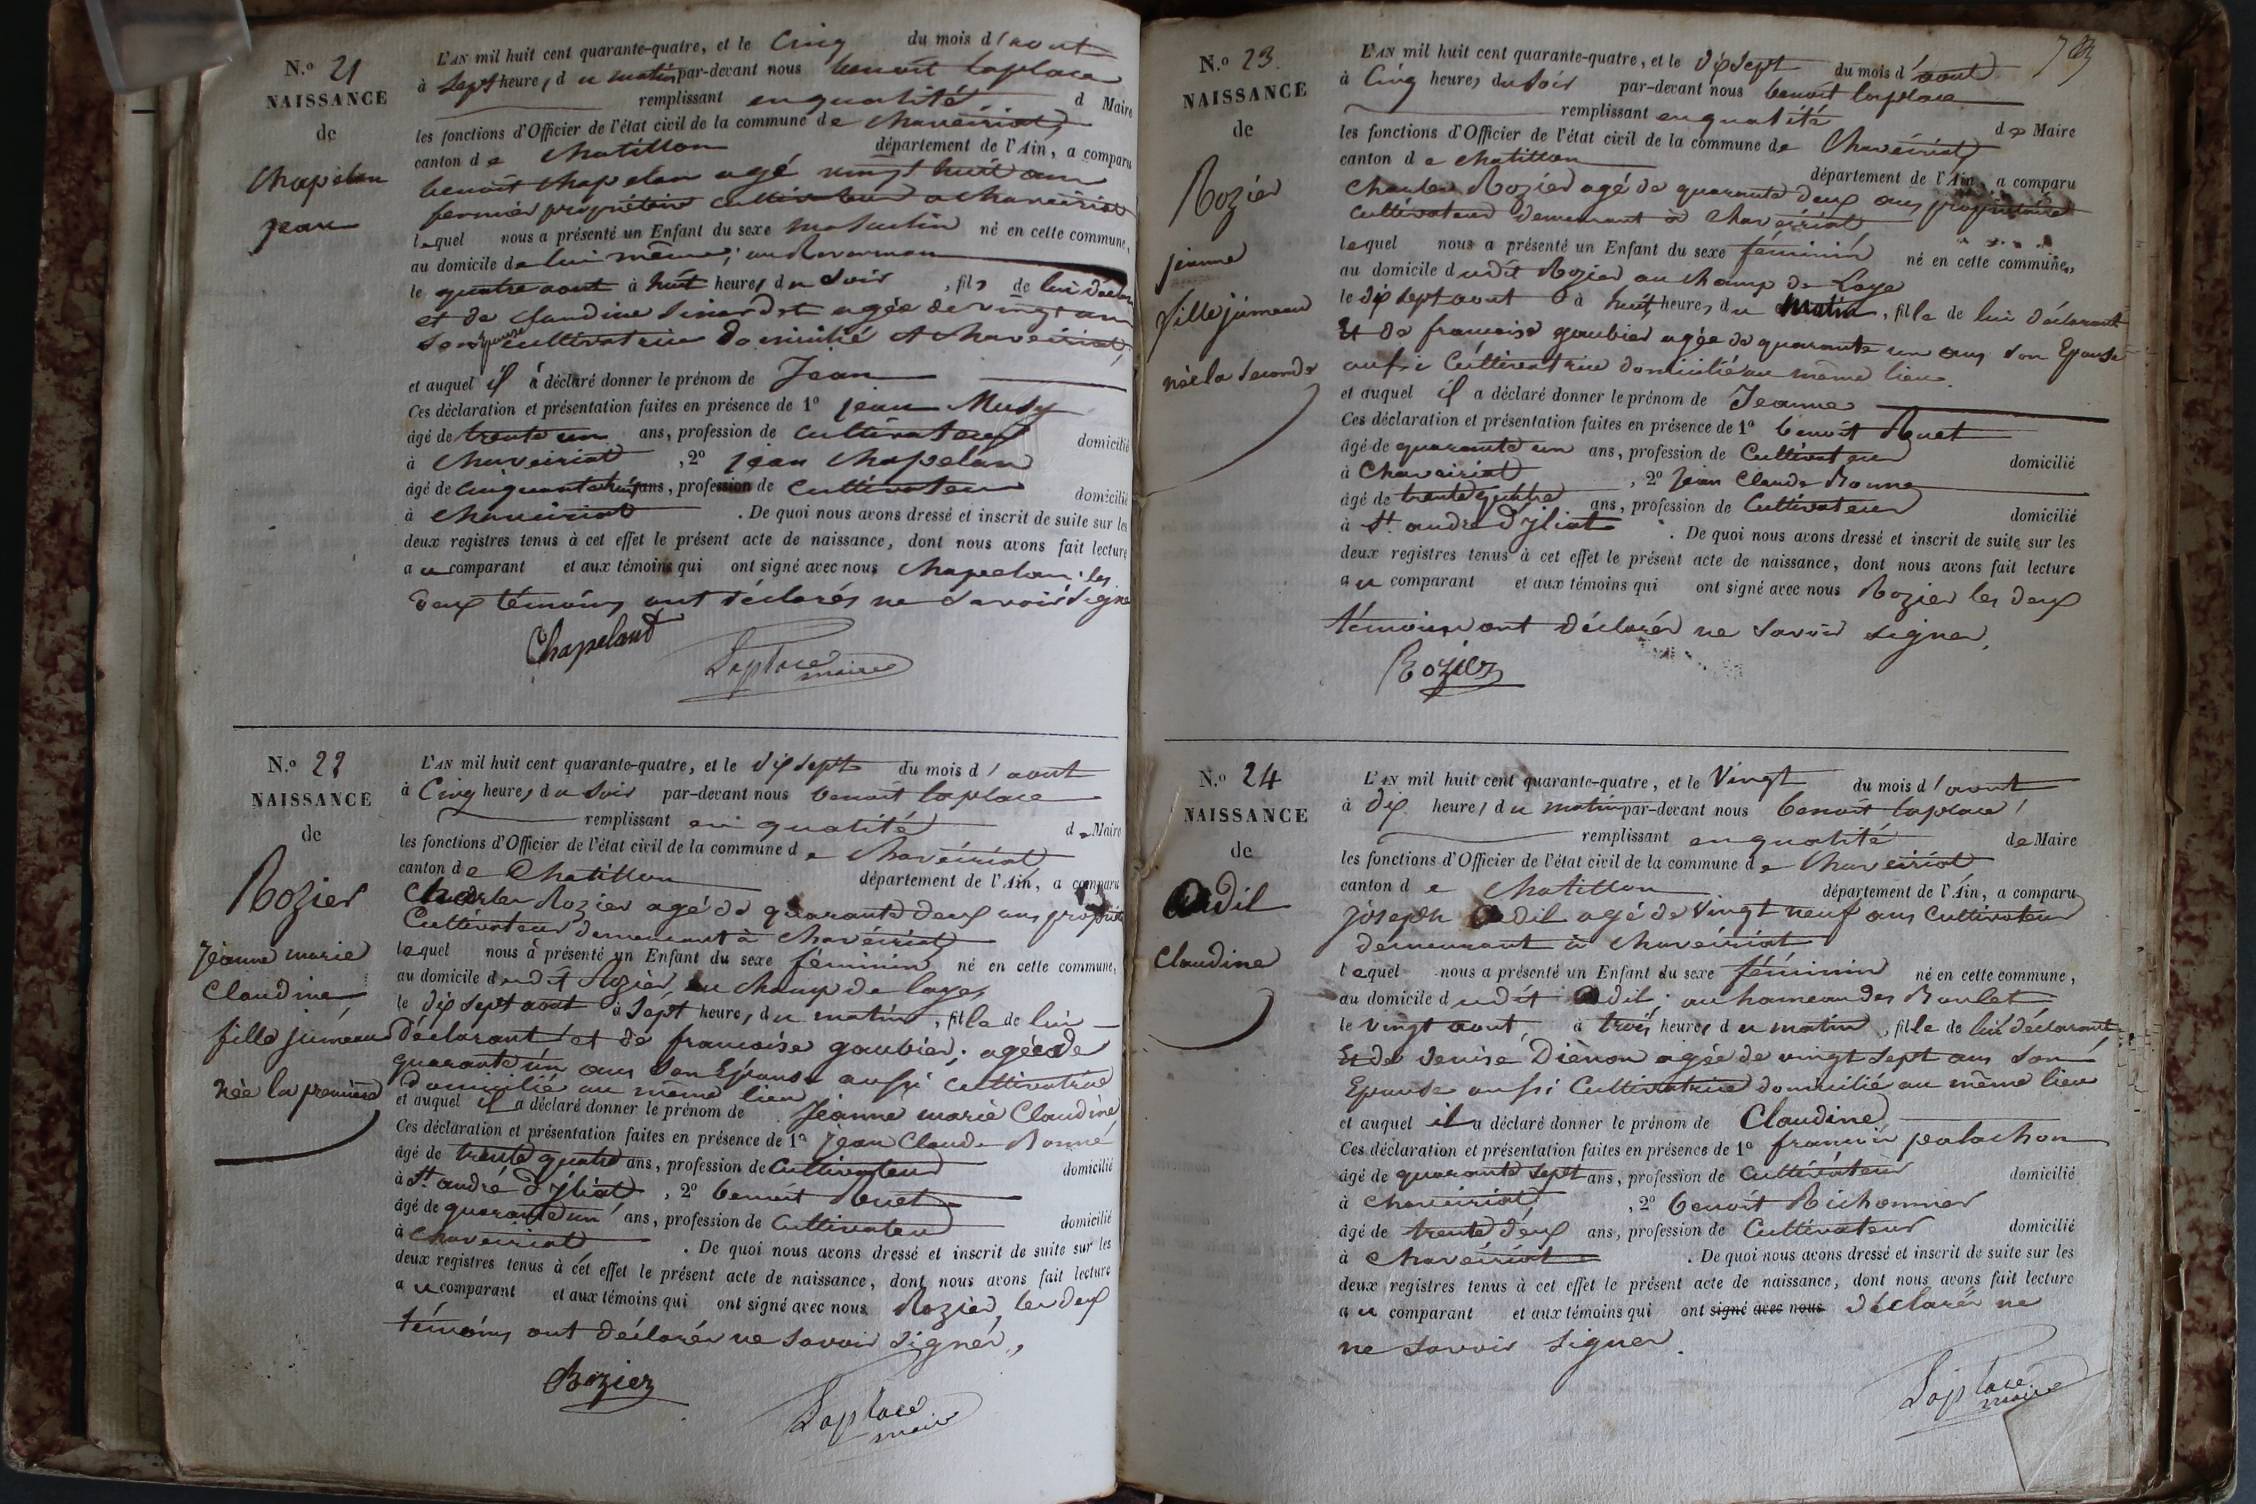 N.o 21
NAISSANCE
de
Chapelan
jean
L'AN mil huit cent quarante-quatre, et le Cinq du mois d'aout
à sept heures du matin par-devant nous benoit laplace
remplissant en qualité d Maire
les fonctions d'Officier de l'état civil de la commune de Chaveiriat
canton de Chatillon département de l'Ain, a comparu
benoit Chapelan agé vingt huit ans
fermier propriétaire Cultivateur a Chaveiriat
lequel nous a présenté un Enfant du sexe masculin né en cette commune,
au domicile de lui même, au
le quatre aout à huit heures du soir, fils de lui déclarant
et de Claudine agée de vingt ans
son Epouse cultivatrice domicilié A Chaveiriat,
et auquel il a déclaré donner le prénom de Jean
Ces déclaration et présentation faites en présence de 1o jean Musy
âgé de trente un ans, profession de Cultivateur domicilié
à Chaveiriat, 2o jean Chapelan
âgé de cinquante huit ans, profession de Cultivateur domicilié
à Chaveiriat. De quoi nous avons dressé et inscrit de suite sur les
deux registres tenus à cet effet le présent acte de naissance, dont nous avons fait lecture
au comparant et aux témoins qui ont signé avec nous Chapelan, les
deux témoins ont déclarés ne savoir signer
Chapeland
Laplace
maire
N.o 22
NAISSANCE
de
Rozier
Jeanne marie
Claudine
fille jumeau
née la première
L'AN mil huit cent quarante-quatre, et le dix sept du mois d'aout
à Cinq heures du soir par-devant nous benoit laplace
remplissant en qualité de Maire
les fonctions d'Officier de l'état civil de la commune de Chaveiriat
canton de Chatillon département de l'Ain, a comparu
Charles Rozier agé de quarante deux ans propriétaire
Cultivateur demeurant à Chavériat
lequel nous a présenté un Enfant du sexe féminin né en cette commune,
au domicile dudit Rozier au champ de laye,
le dix sept aout à sept heures du matin, fille de lui
déclarant et de francoise gaubier, agée de
quarante un ans son Epouse aussi cultivatrice
domicilié au même lieu
et auquel il a déclaré donner le prénom de Jeanne marie Claudine
Ces déclaration et présentation faites en présence de 1o jean Claude Bonne
âgé de trente quatre ans, profession de Cultivateur domicilié
à St andré d'Uliat, 2o benoit Ruet
âgé de quarante un ans, profession de Cultivateur domicilié
à Chaveiriat. De quoi nous avons dressé et inscrit de suite sur les
deux registres tenus à cet effet le présent acte de naissance, dont nous avons fait lecture
au comparant et aux témoins qui ont signé avec nous Rozier, les deux
témoins ont déclarés ne savoir signer,
Rozier
Laplace
maire
N.o 23
NAISSANCE
de
Rozier
jeanne
fille jumeau
née la seconde
L'AN mil huit cent quarante-quatre, et le dix sept du mois d'aout
à Cinq heures du soir par-devant nous benoit laplace
remplissant en qualité de Maire
les fonctions d'Officier de l'état civil de la commune de Chaveiriat
canton de Chatillon département de l'Ain, a comparu
Charles Rozier agé de quarante deux ans propriétaire
cultivateur demeurant à Chavériat
lequel nous a présenté un Enfant du sexe féminin né en cette commune,
au domicile dudit Rozier au champ de Laye
le dix sept aout à huit heures du matin, fille de lui déclarant
Et de francoise gaubier agée de quarante un ans son Epouse
aussi Cultivatrice domicilié au même lieu.
et auquel il a déclaré donner le prénom de Jeanne
Ces déclaration et présentation faites en présence de 1o benoit Ruet
âgé de quarante un ans, profession de Cultivateur domicilié
à Chaveiriat, 2o Jean Claude Bonne
âgé de trente quatre ans, profession de Cultivateur domicilié
à St andré d'Uliat. De quoi nous avons dressé et inscrit de suite sur les
deux registres tenus à cet effet le présent acte de naissance, dont nous avons fait lecture
au comparant et aux témoins qui ont signé avec nous Rozier les deux
témoins ont déclarés ne savoir signer,
Rozier
N.o 24
NAISSANCE
de
Odil
Claudine
L'AN mil huit cent quarante-quatre, et le Vingt du mois d'aout
à dix heures du matin par-devant nous benoit laplace
remplissant en qualité de Maire
les fonctions d'Officier de l'état civil de la commune de Chaveiriat
canton de Chatillon département de l'Ain, a comparu
joseph Odil agé de Vingt neuf ans Cultivateur
demeurant à Chaveiriat
lequel nous a présenté un Enfant du sexe féminin né en cette commune,
au domicile dudit Odil au hameau des
le vingt aout à trois heures du matin, fille de lui déclarant
Et de denise Diénon agée de vingt sept ans son
Epouse aussi Cultivatrice domicilié au même lieu
et auquel il a déclaré donner le prénom de Claudine
Ces déclaration et présentation faites en présence de 1o francois palachon
âgé de quarante sept ans, profession de Cultivateur domicilié
à Chaveiriat, 2o benoit Bichonnier
âgé de trente deux ans, profession de Cultivateur domicilié
à Chaveiriat. De quoi nous avons dressé et inscrit de suite sur les
deux registres tenus à cet effet le présent acte de naissance, dont nous avons fait lecture
au comparant et aux témoins qui ont signé avec nous déclarés ne
ne savoir signer.
Laplace
maire